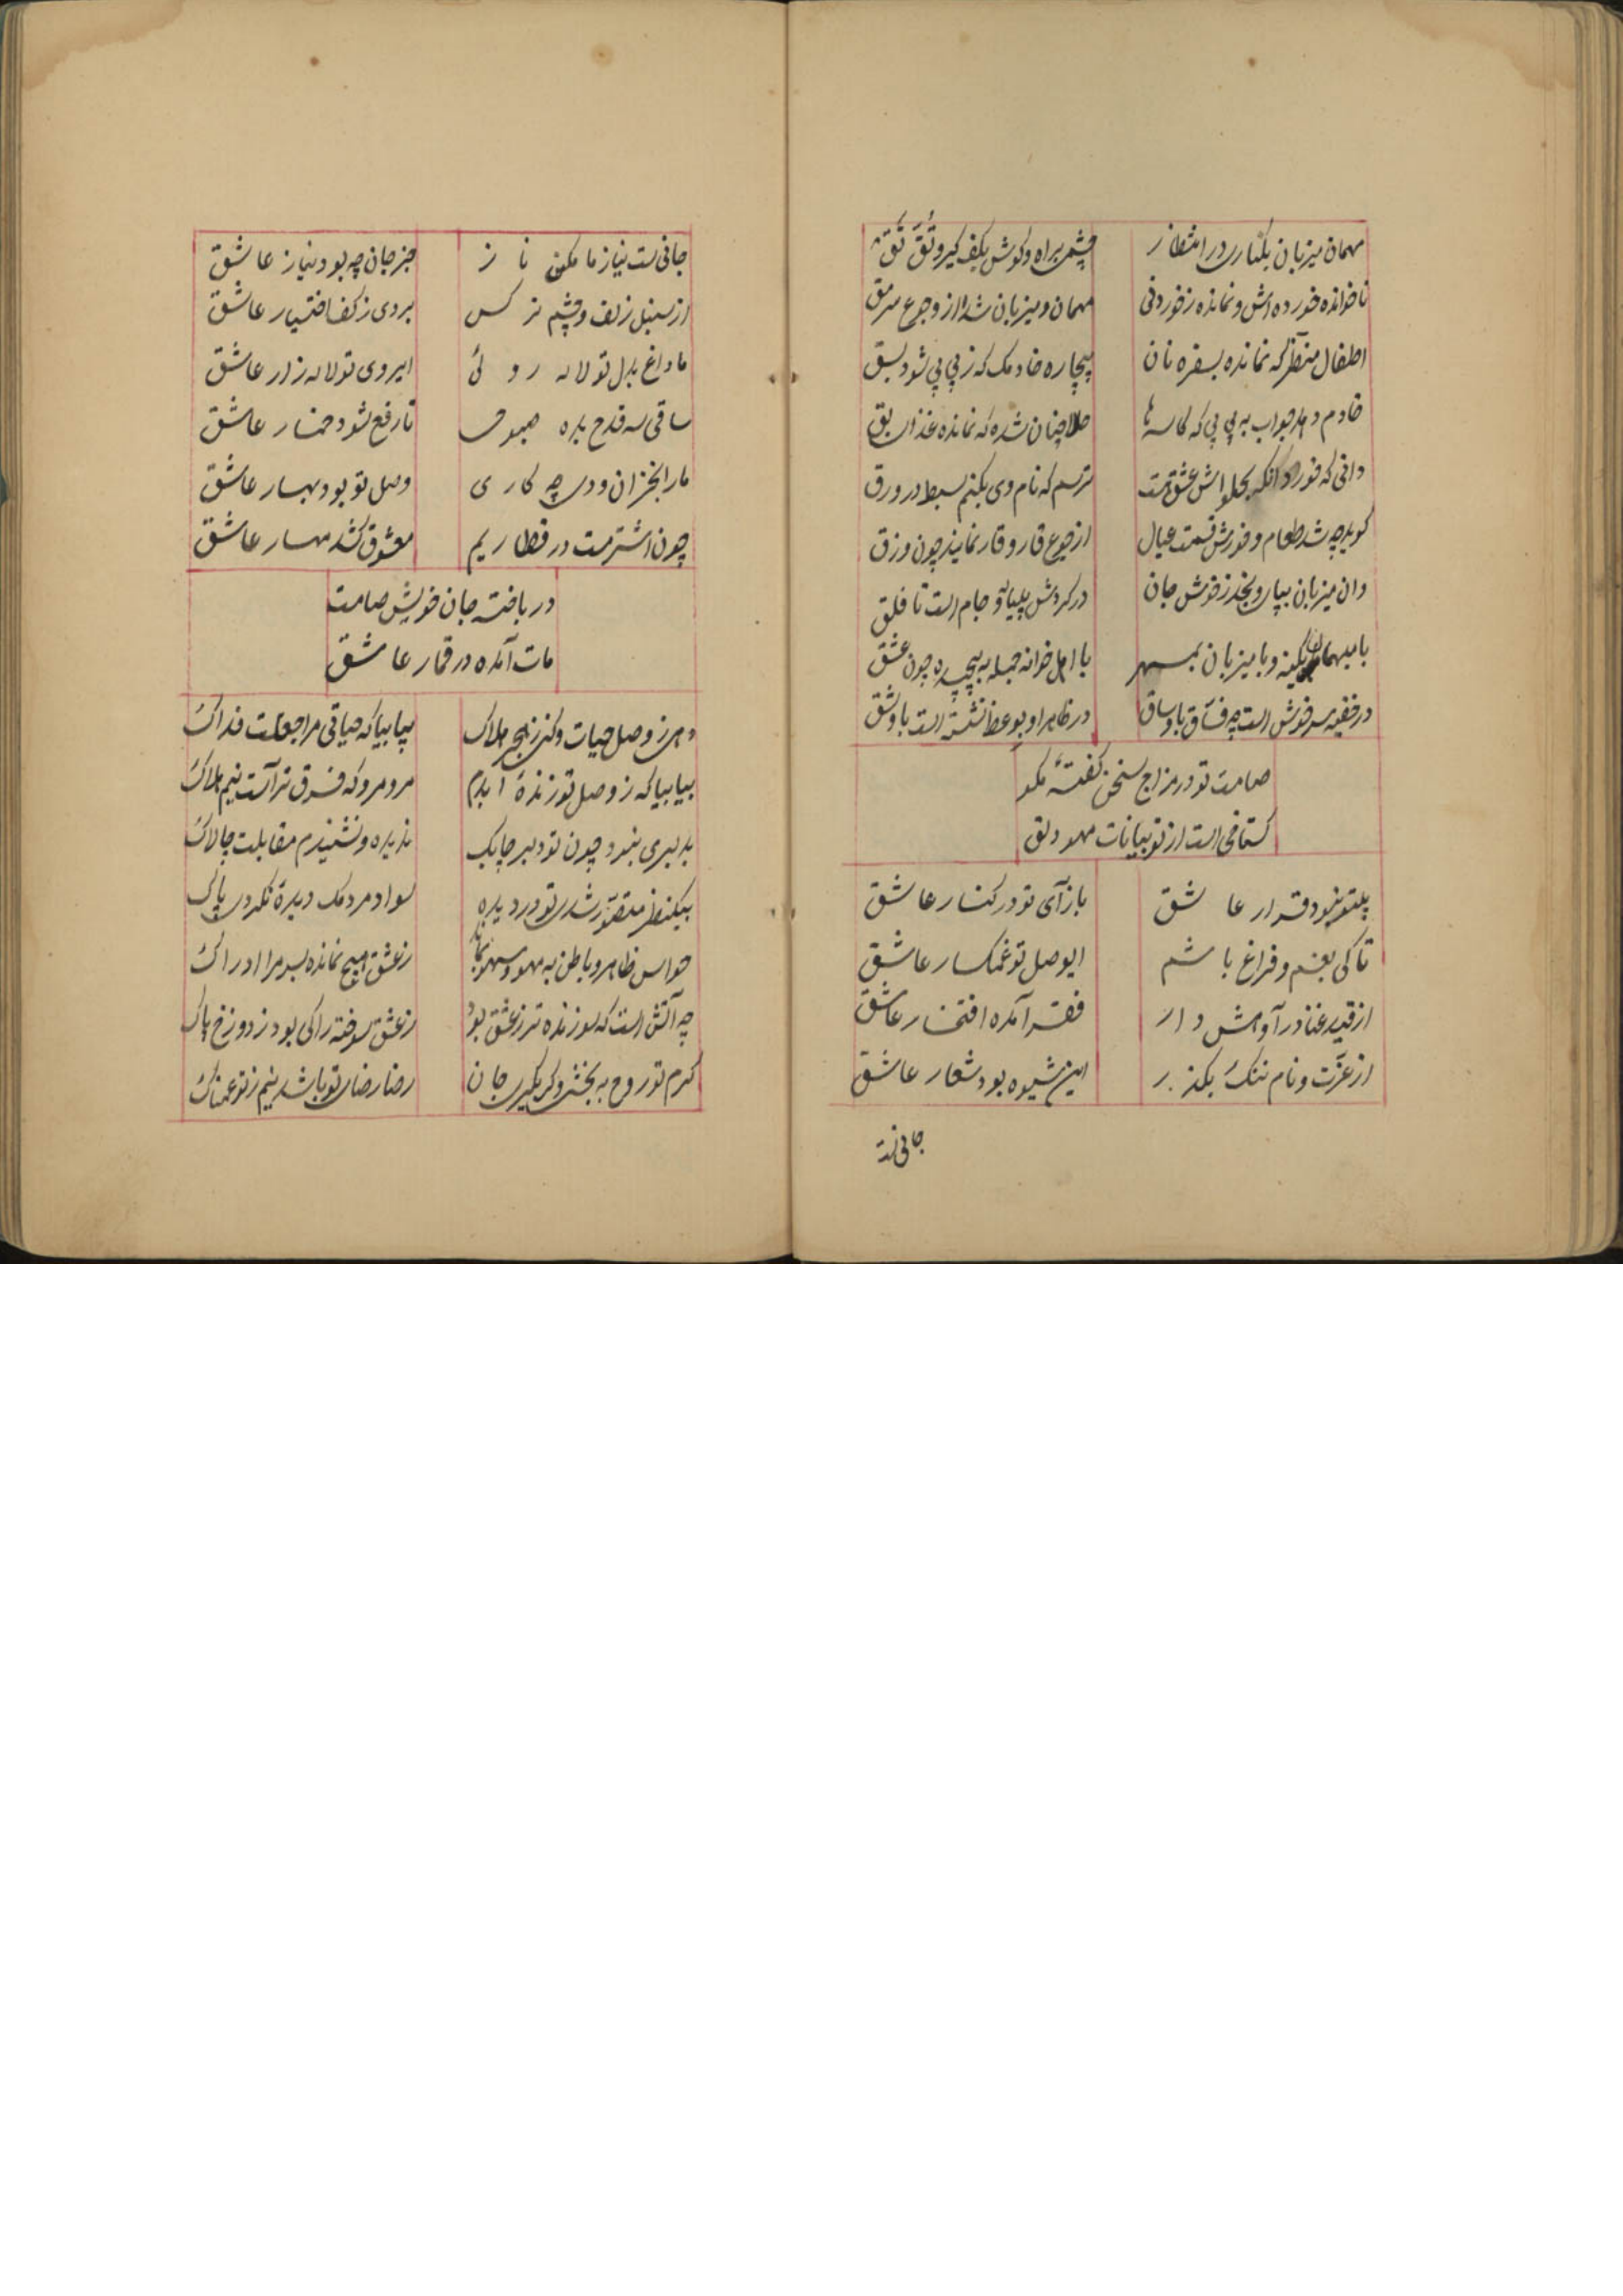 مهمان میزبان بکناری در انتظار
چشمی براه و گوش بکفگیر و تق تق
ناخوانده خورده اش و نمانده ز خوردنی
مهمان و میزبان شد از جوع
اطفال منتظر که نمانده بسفره نان
بیچاره خادمک که ز پی پی شود
خادم دهد جواب به پی پی که کاسه ها
نمانده غذا
دانی که خورد آنکه بحلواش عشق تست
ترسم که نام وی بکنم بسط در ورق
گوید چه شد طعام و خورش قسمت عیال
از جوع قار و قار نمایند چون وزق
وان میزبان بجان
در گردش پیاله و جام است تا فلق
با میهمان بکینه و با میزبان بمهر
با اهل خوانه جمله به پیچیده چون عشق
در خفیه سرخوش است چه فساق با وساق
در ظاهر او بوعظ نشسته است با وشق
صامت تو در مزاج سخن گفتهٔ مگو
گستاخی است از تو بیانات
بیتو نبود قرار عاشق
باز آی تو در کنار عاشق
تا کی بغم و فراغ باشم
ایوصل تو غمگسار عاشق
از قید غنا در آ
فقر آمده افتخار عاشق
از عزت و نام ننگ بگذر
این شیوه بود شعار عاشق
جانی است
جانی است نیاز ما مکن ناز
جز جان چه بود نیاز عاشق
از سنبل زلف و چشم نرگس
بردی ز کف اختیار عاشق
ما داغ بدل تو لاله روئی
ایروی تو لاله زار عاشق
ساقی سه قدح بده صبوحی
تا رفع شود خمار عاشق
ما را بخزان و دی چه کاری
وصل تو بود بهار عاشق
چون اشتر مست در قطاریم
معشوق کشد مهار عاشق
در باخته جان خویش صامت
مات آمده در قمار عاشق
دهی ز وصل حیات و کنی ز هجر هلاک
بیا بیا که حیاتی مرا جعلت فداک
بیا بیا که ز وصل تو زندهٔ ابدم
مرو مرو که فرق تو است بیم هلاک
بدلبری نبود چون تو دلبر چابک
ندیده و نشنیدم مقابلت چالاک
بیکنظر متصور شدی تو در دیده
سواد مردمک دیدهٔ نکردی پاک
حواس ظاهر و باطن به مهو و سهو نماند
ز عشق هیچ نمانده بسر مرا ادراک
چه آتش است که سوزنده تر ز عشق بود
ز عشق سوخته را کی بود ز دوزخ باک
کرم تو روح به بخشی و گر بگیری جان
رضا رضای تو باشد نیم ز تو غمناک